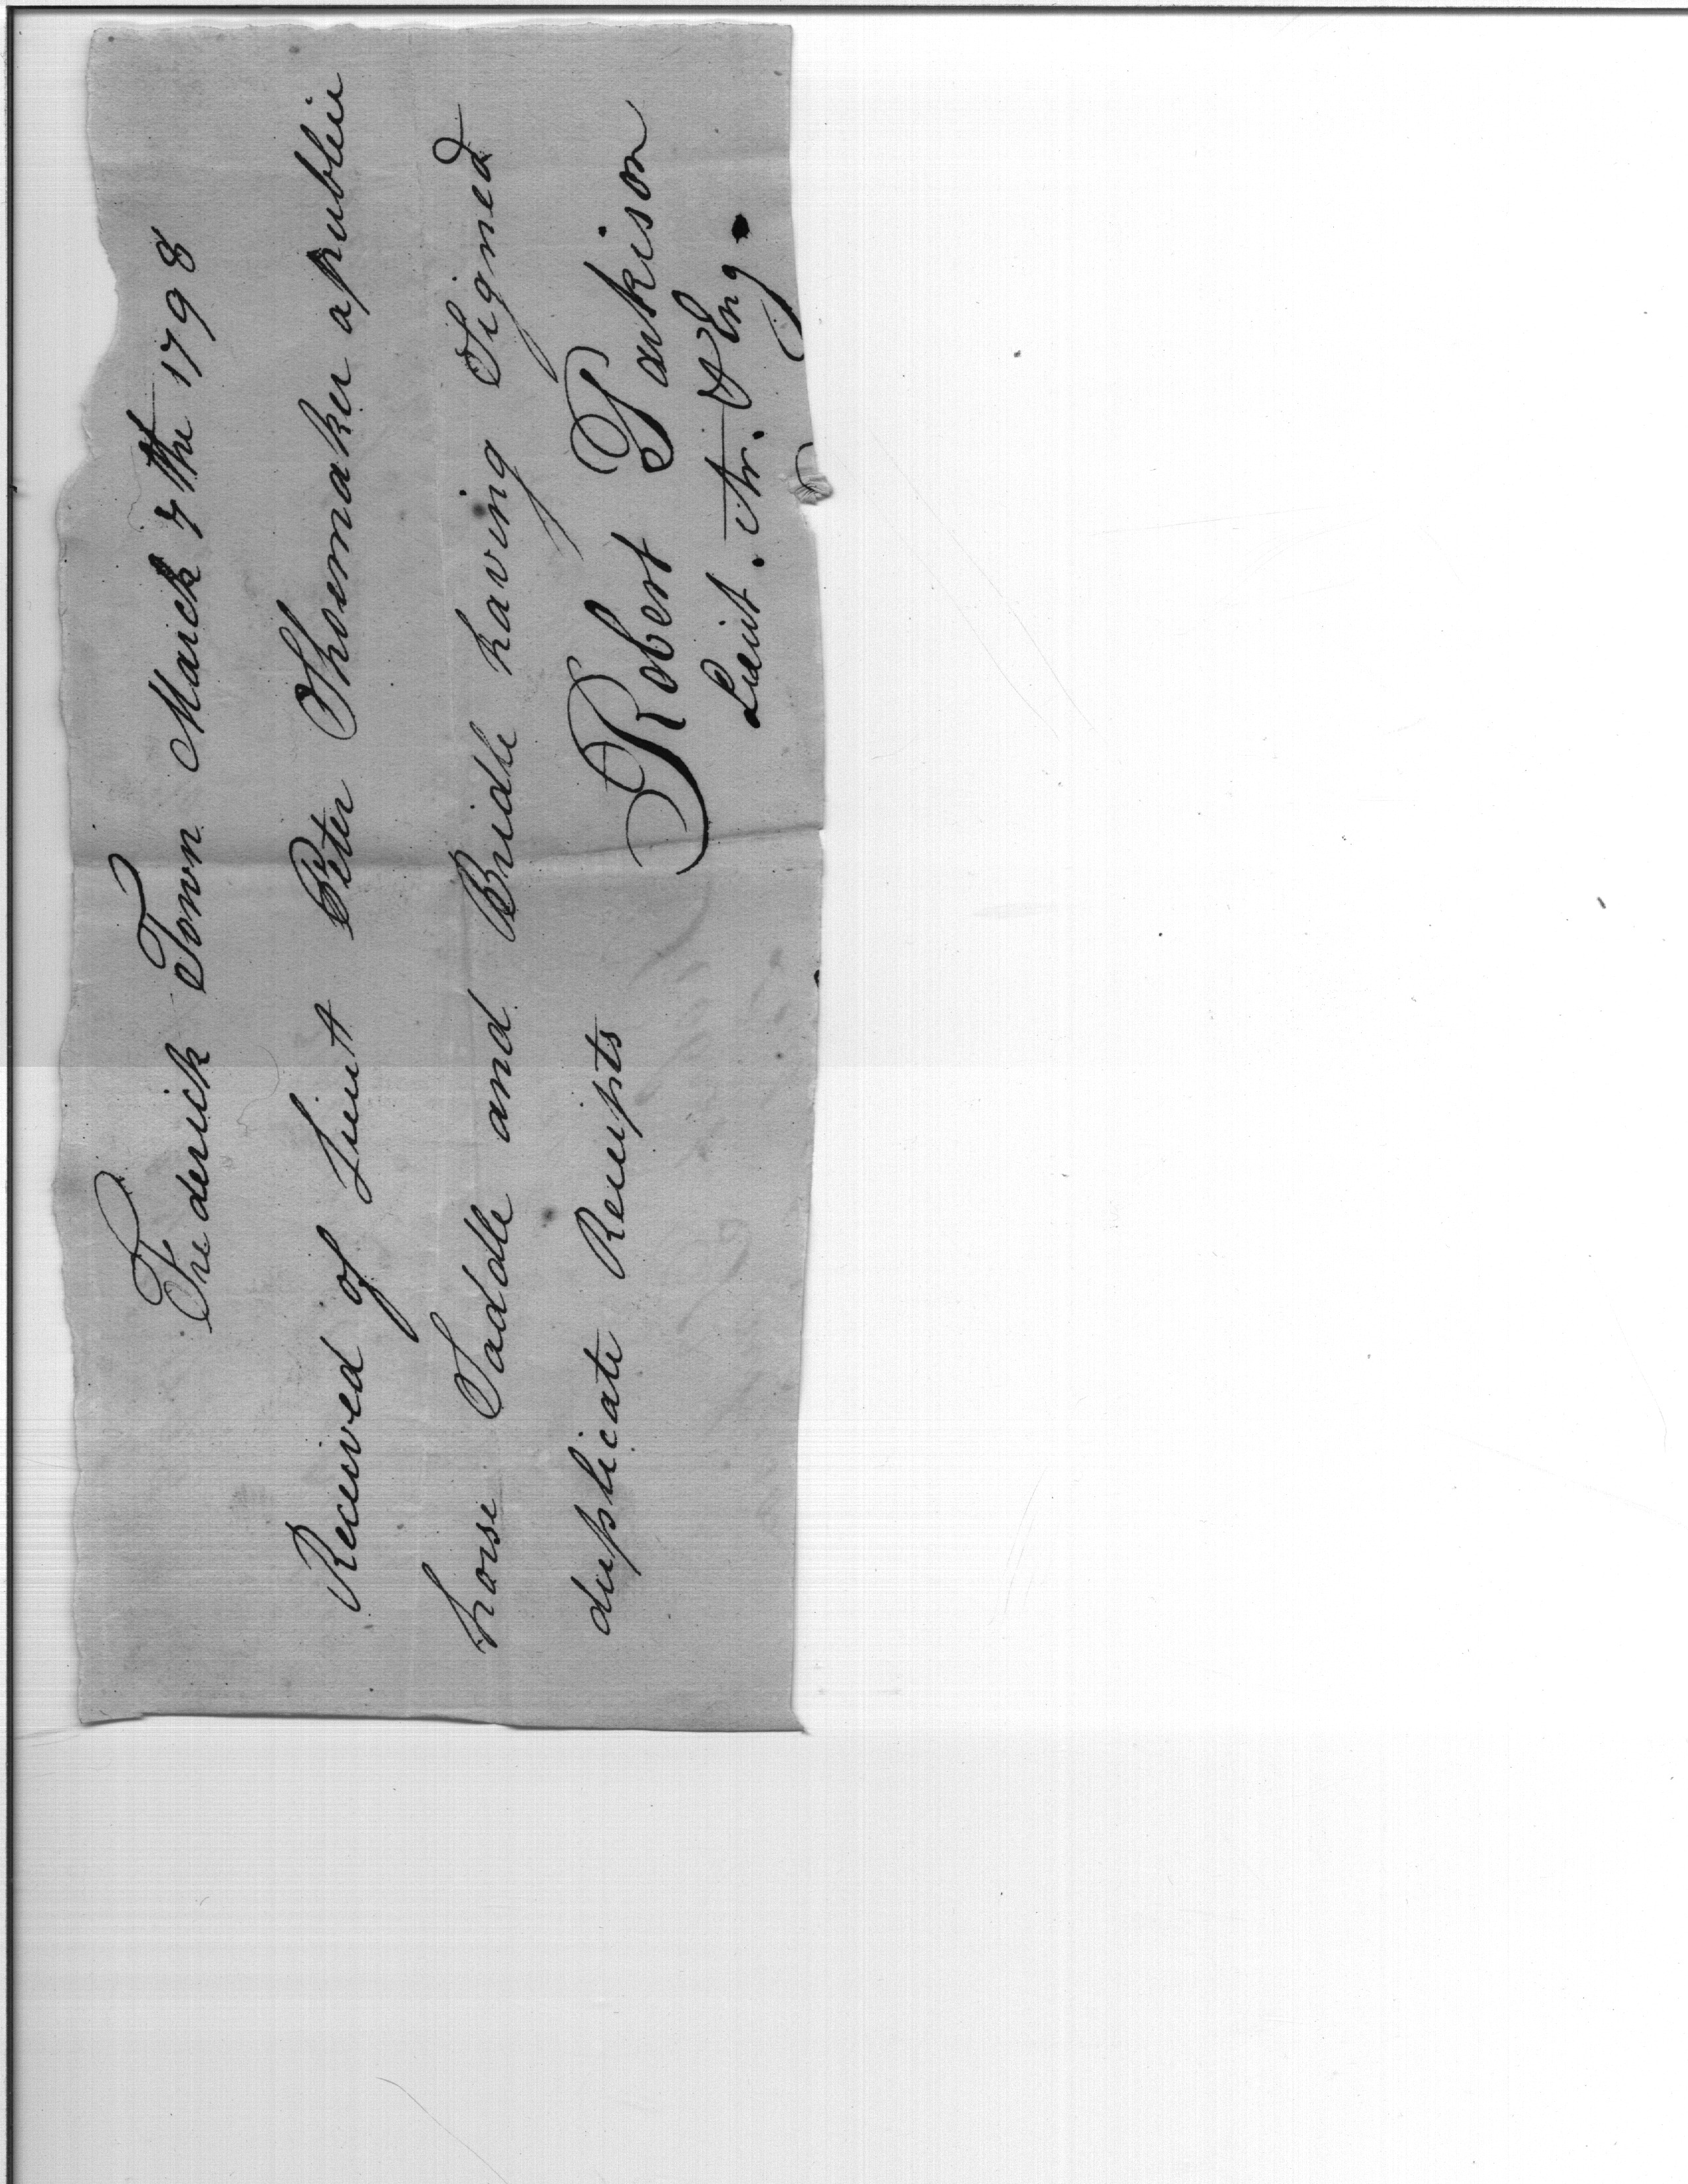 Frederick Town March 7 the 1798
Received of Lieut Peter Shoemaker a publice
horse Saddle and Bridle having Signed
duplicate Receipts
Robert Parkison
Lieut. Ar. & Eng.